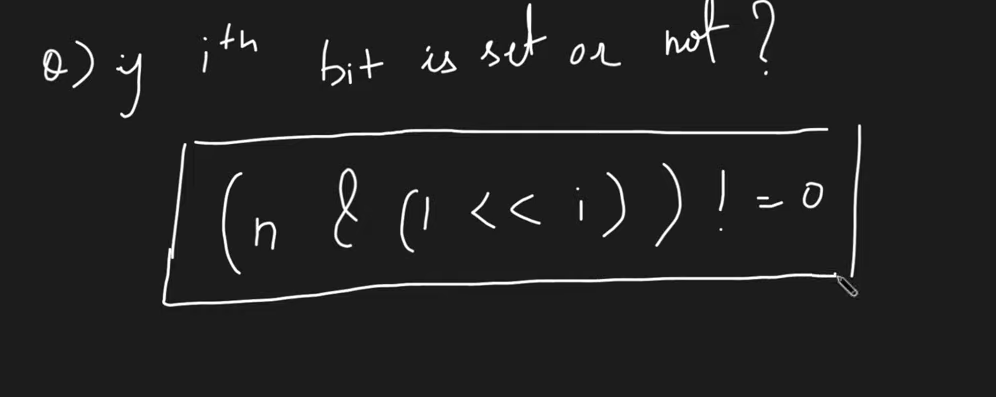 Q) if ith bit is set or not ?
(n & (1 << i)) != 0